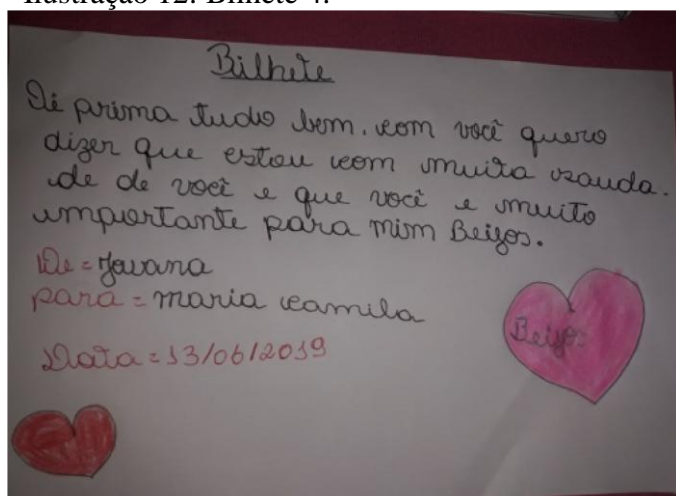 Ilustração 12: Bilhete 4.
Bilhete
Oi prima tudo bem. com você quero
dizer que estou com muita sauda.
de de você e que você e muito
importante para mim Beijos.
De = Jovana
para = maria camila
Data = 13/06/2019
Beijos